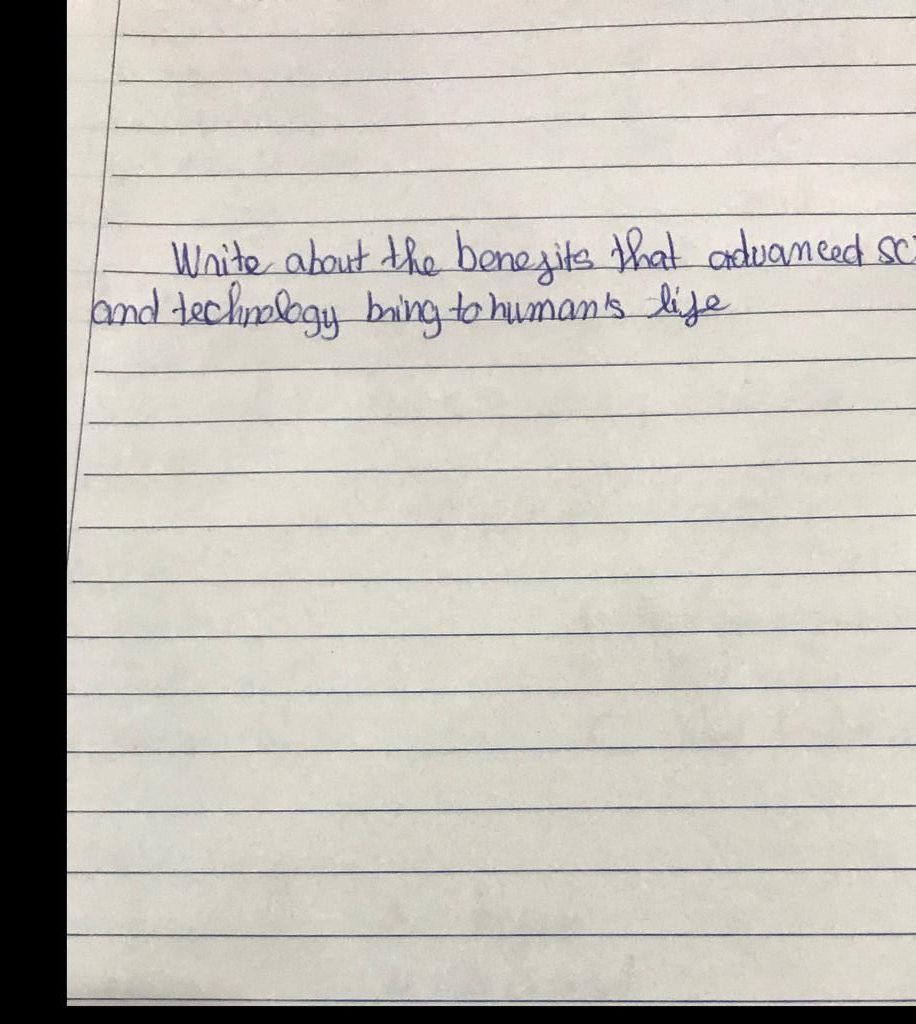 Write about the benefits that advanced sc
and technology bring to human's life